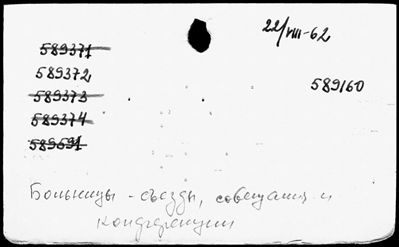 22/VIII-62
589371
589372
589160
589373
589374
589591
Больницы - съезды, совещания и
конференции